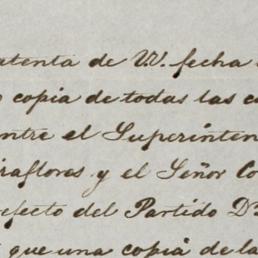 atenta de VV. fecha
copia de todas las c
entre el Superinten
raflores y el Señor Co
efecto del Partido Dn
que una copia de la